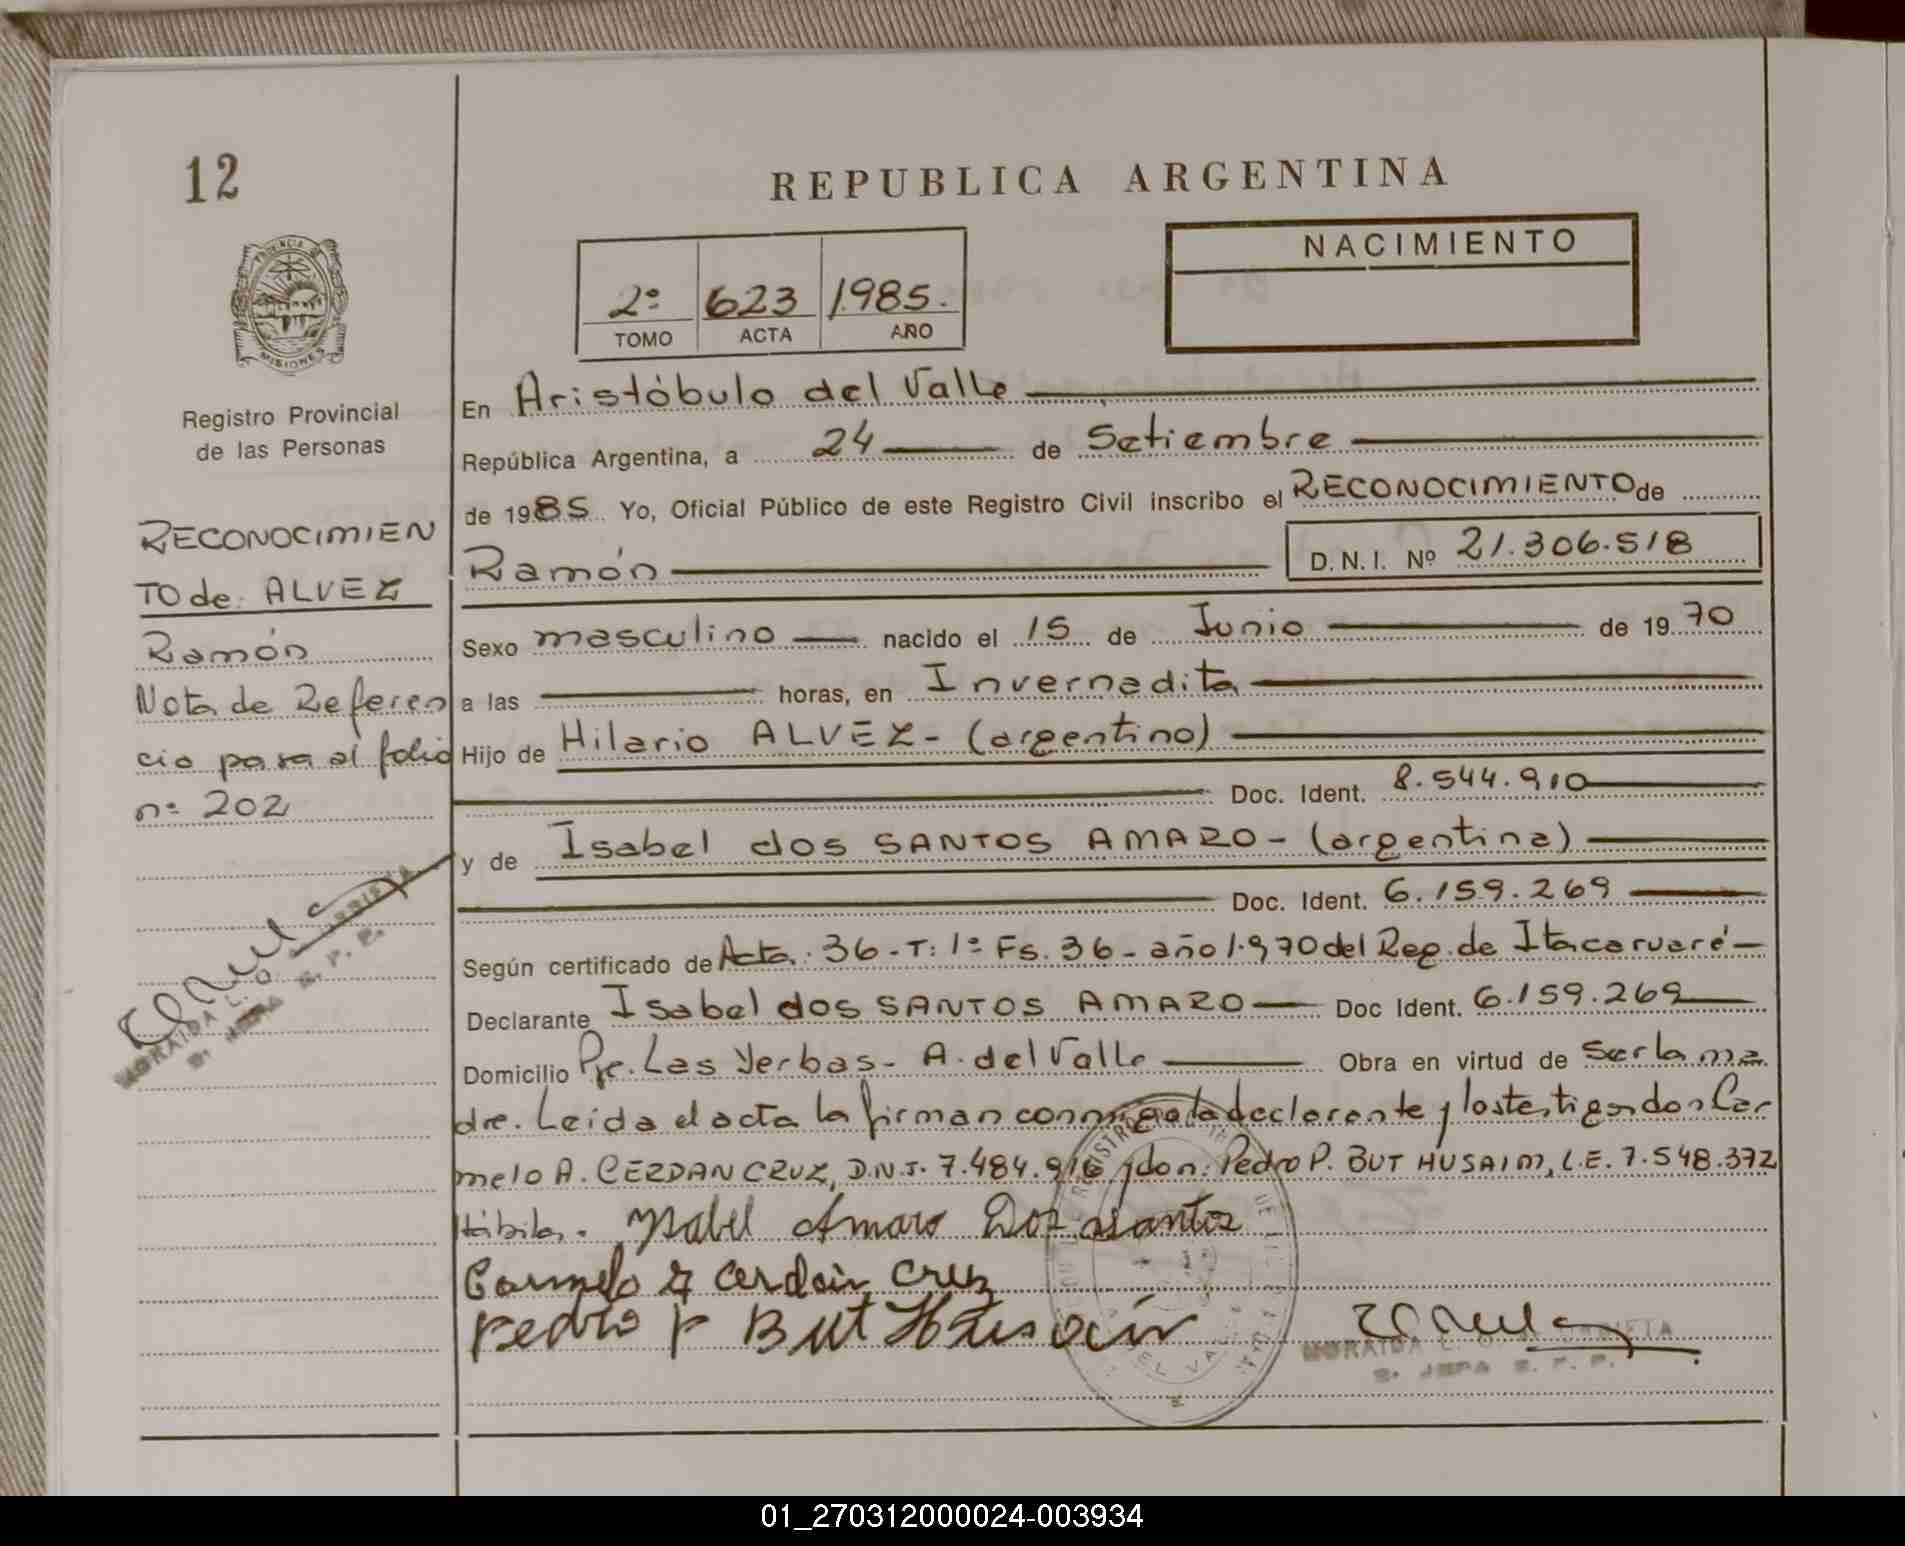 12
REPUBLICA ARGENTINA
PROVINCIA DE
MISIONES
2º 623 1.985.
TOMO ACTA AÑO
NACIMIENTO
Registro Provincial
de las Personas
RECONOCIMIEN
TO de: ALVEZ
Ramón
Nota de Referen
cia para al folio
nº 202
En Aristóbulo del Valle
República Argentina, a 24 de Setiembre
de 1985 Yo, Oficial Público de este Registro Civil inscribo el RECONOCIMIENTO de
Ramón D.N.I. Nº 21.306.518
Sexo masculino nacido el 15 de Junio de 1970
a las horas, en Invernadita
Hijo de Hilario ALVEZ - (argentino)
Doc. Ident. 8.544.910
y de Isabel dos SANTOS AMARO - (argentina)
Doc. Ident. 6.159.269
Según certificado de Acta: 36 - T: 1º Fs. 36 - año 1.970 del Reg. de Itacaruaré -
Declarante Isabel dos SANTOS AMARO Doc Ident. 6.159.269
Domicilio Pje. Las Yerbas - A. del Valle Obra en virtud de ser la ma
dre. Leída el acta la firman conmigo la declarante y los testigos don Car
melo A. CERDAN CRUZ, D.N.I. 7.484.916 y don: Pedro P. BUT HUSAIM, L.E. 7.548.372
Hábiles. Ysabel Amaro Dos Santos
Carmelo A Cerdan Cruz
Pedro P But Husain
MORAIDA L. O. URRIETA
S. JEFA R. P. P.
01_270312000024-003934